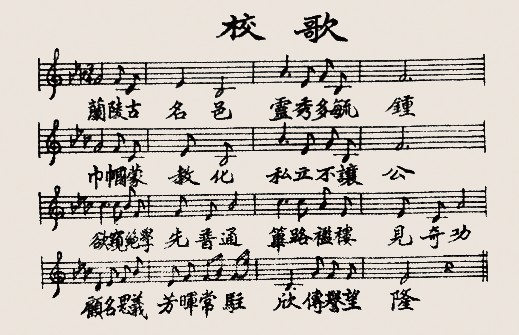 校歌
蘭陵古名邑靈秀多毓鍾
巾幗蒙教化私立不讓公
欲窺絕學先普通篳路襤褸見奇功
顧名思義芳暉常駐欣傳譽望隆